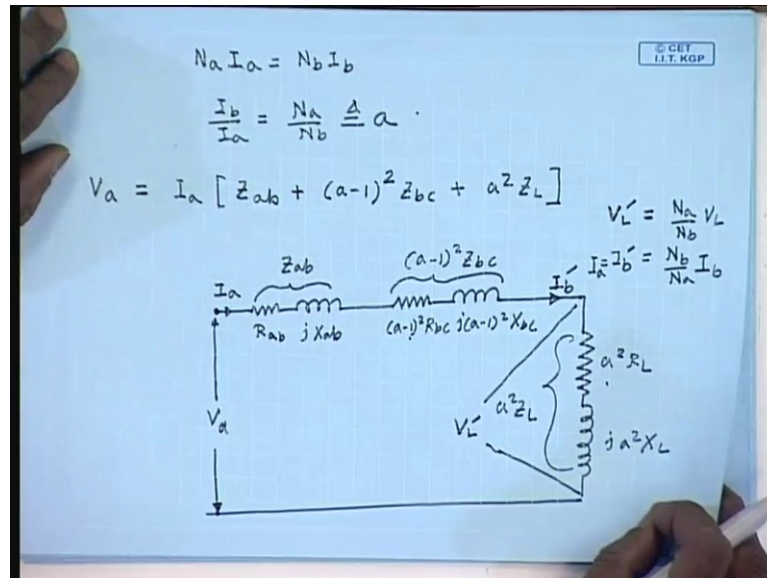 © CET
I.I.T. KGP
Na Ia = Nb Ib
Ib/Ia = Na/Nb ≜ a .
Va = Ia [ Zab + (a-1)² Zbc + a² ZL ]
VL′ = Na/Nb VL
Ia = Ib′ = Nb/Na Ib
Zab
(a-1)² Zbc
Ia
Ib′
Rab j Xab
(a-1)² Rbc j(a-1)² Xbc
a² RL
a² ZL
Va
VL′
j a² XL